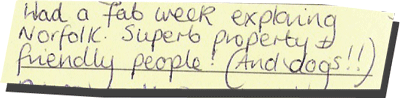 Had a fab week exploring
Norfolk. Superb property &
friendly people! (And dogs!!)